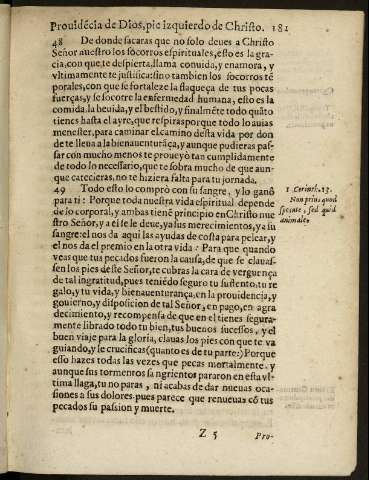 Prouidẽcia de Dios, pie izquierdo de Christo. 181
48 De donde sacaras que no solo deues a Christo
Señor nuestro los socorros espirituales, esto es la gra-
cia, con que te despierta, llama conuida, y enamora, y
vltimamente te justifica: sino tambien los socorros tẽ
porales, con que se fortaleze la flaqueça de tus pocas
fuerças, y se socorre la enfermedad humana, esto es la
comida, la beuida, y el bestido, y finalmẽte todo quãto
tienes hasta el ayre, que respiras porque todo lo auias
menester, para caminar el camino desta vida por don
de te lleua a la bienauenturãça, y aunque pudieras pas-
sar con mucho menos te proueyò tan cumplidamente
de todo lo necessario, que te sobra mucho de que aun-
que catecieras, no te hiziera falta para tu jornada.
49 Todo esto lo comprò con su sangre, y lo ganò
para ti: Porque toda nuestra vida espiritual depende
de lo corporal, y ambas tienẽ principio en Christo nue
stro Señor, y a el se le deue, ya sus merecimientos, ya su
sangre: el nos da aqui las ayudas de costa para pelear, y
el nos da el premio en la otra vida: Para que quando
veas que tus pecados fueron la causa, de que se clauas-
sen los pies deste Señor, te cubras la cara de verguença
de tal ingratitud, pues teniẽdo seguro tu sustento, tu re
galo, y tu vida, y bienauenturança, en la prouidencia, y
gouierno, y disposicion de tal Señor, en pago, en agra
decimiento, y recompensa de que en el tienes segura-
mente librado todo tu bien, tus buenos sucessos, y el
buen viaje para la gloria, clauas los pies con que te va
guiando, y le crucificas (quanto es de tu parte:) Porque
esso hazes todas las vezes que pecas mortalmente. y
aunque sus tormentos sangrientos pararon en esta vl-
tima llaga, tu no paras, ni acabas de dar nueuas oca-
siones a sus dolores. pues parece que renueuas cõ tus
pecados su passion y muerte.
1 Corinth. 15.
Non prius quod
spiritale, sed quod
animale.
Z 5 Pro-